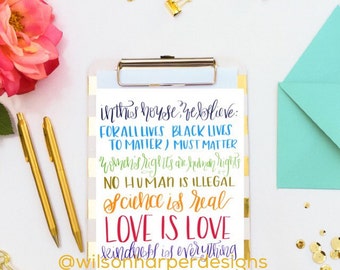 in this house, we believe:
FOR ALL LIVES BLACK LIVES
TO MATTER, MUST MATTER
women's rights are human rights
NO HUMAN IS ILLEGAL
science is real
LOVE IS LOVE
kindness is everything
@wilsonharperdesigns